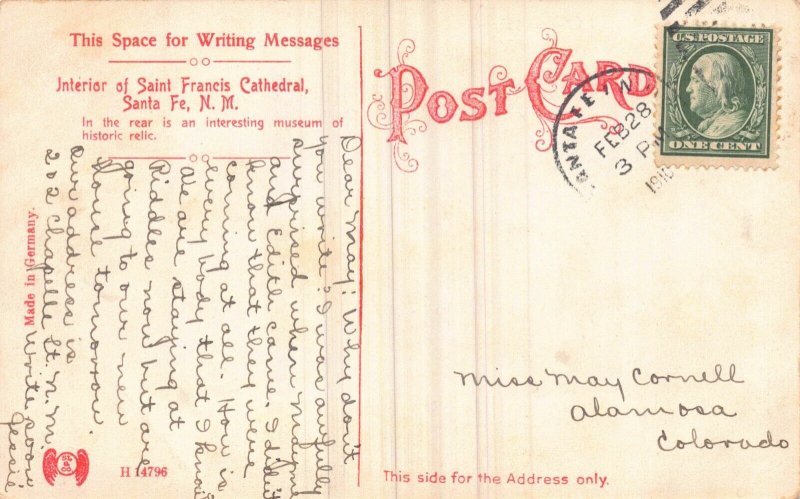 This Space for Writing Messages
Interior of Saint Francis Cathedral,
Santa Fe, N. M.
In the rear is an interesting museum of
historic relic.
POST CARD
SANTA FE, N.
FEB 28
3 PM
U.S. POSTAGE
ONE CENT
Dear May: Why don't
you write? I was awfully
surprised when
and Edith came. I didn't
know that they were
coming at all. How is
every body that I know
We are staying at
Riddles now but are
going to our new
House tomorrow.
Our address is
202 Chapelle St. N. M.
Write soon
Jessie
Made in Germany.
H 14796
Miss May Cornell
Alamosa
Colorado
This side for the Address only.